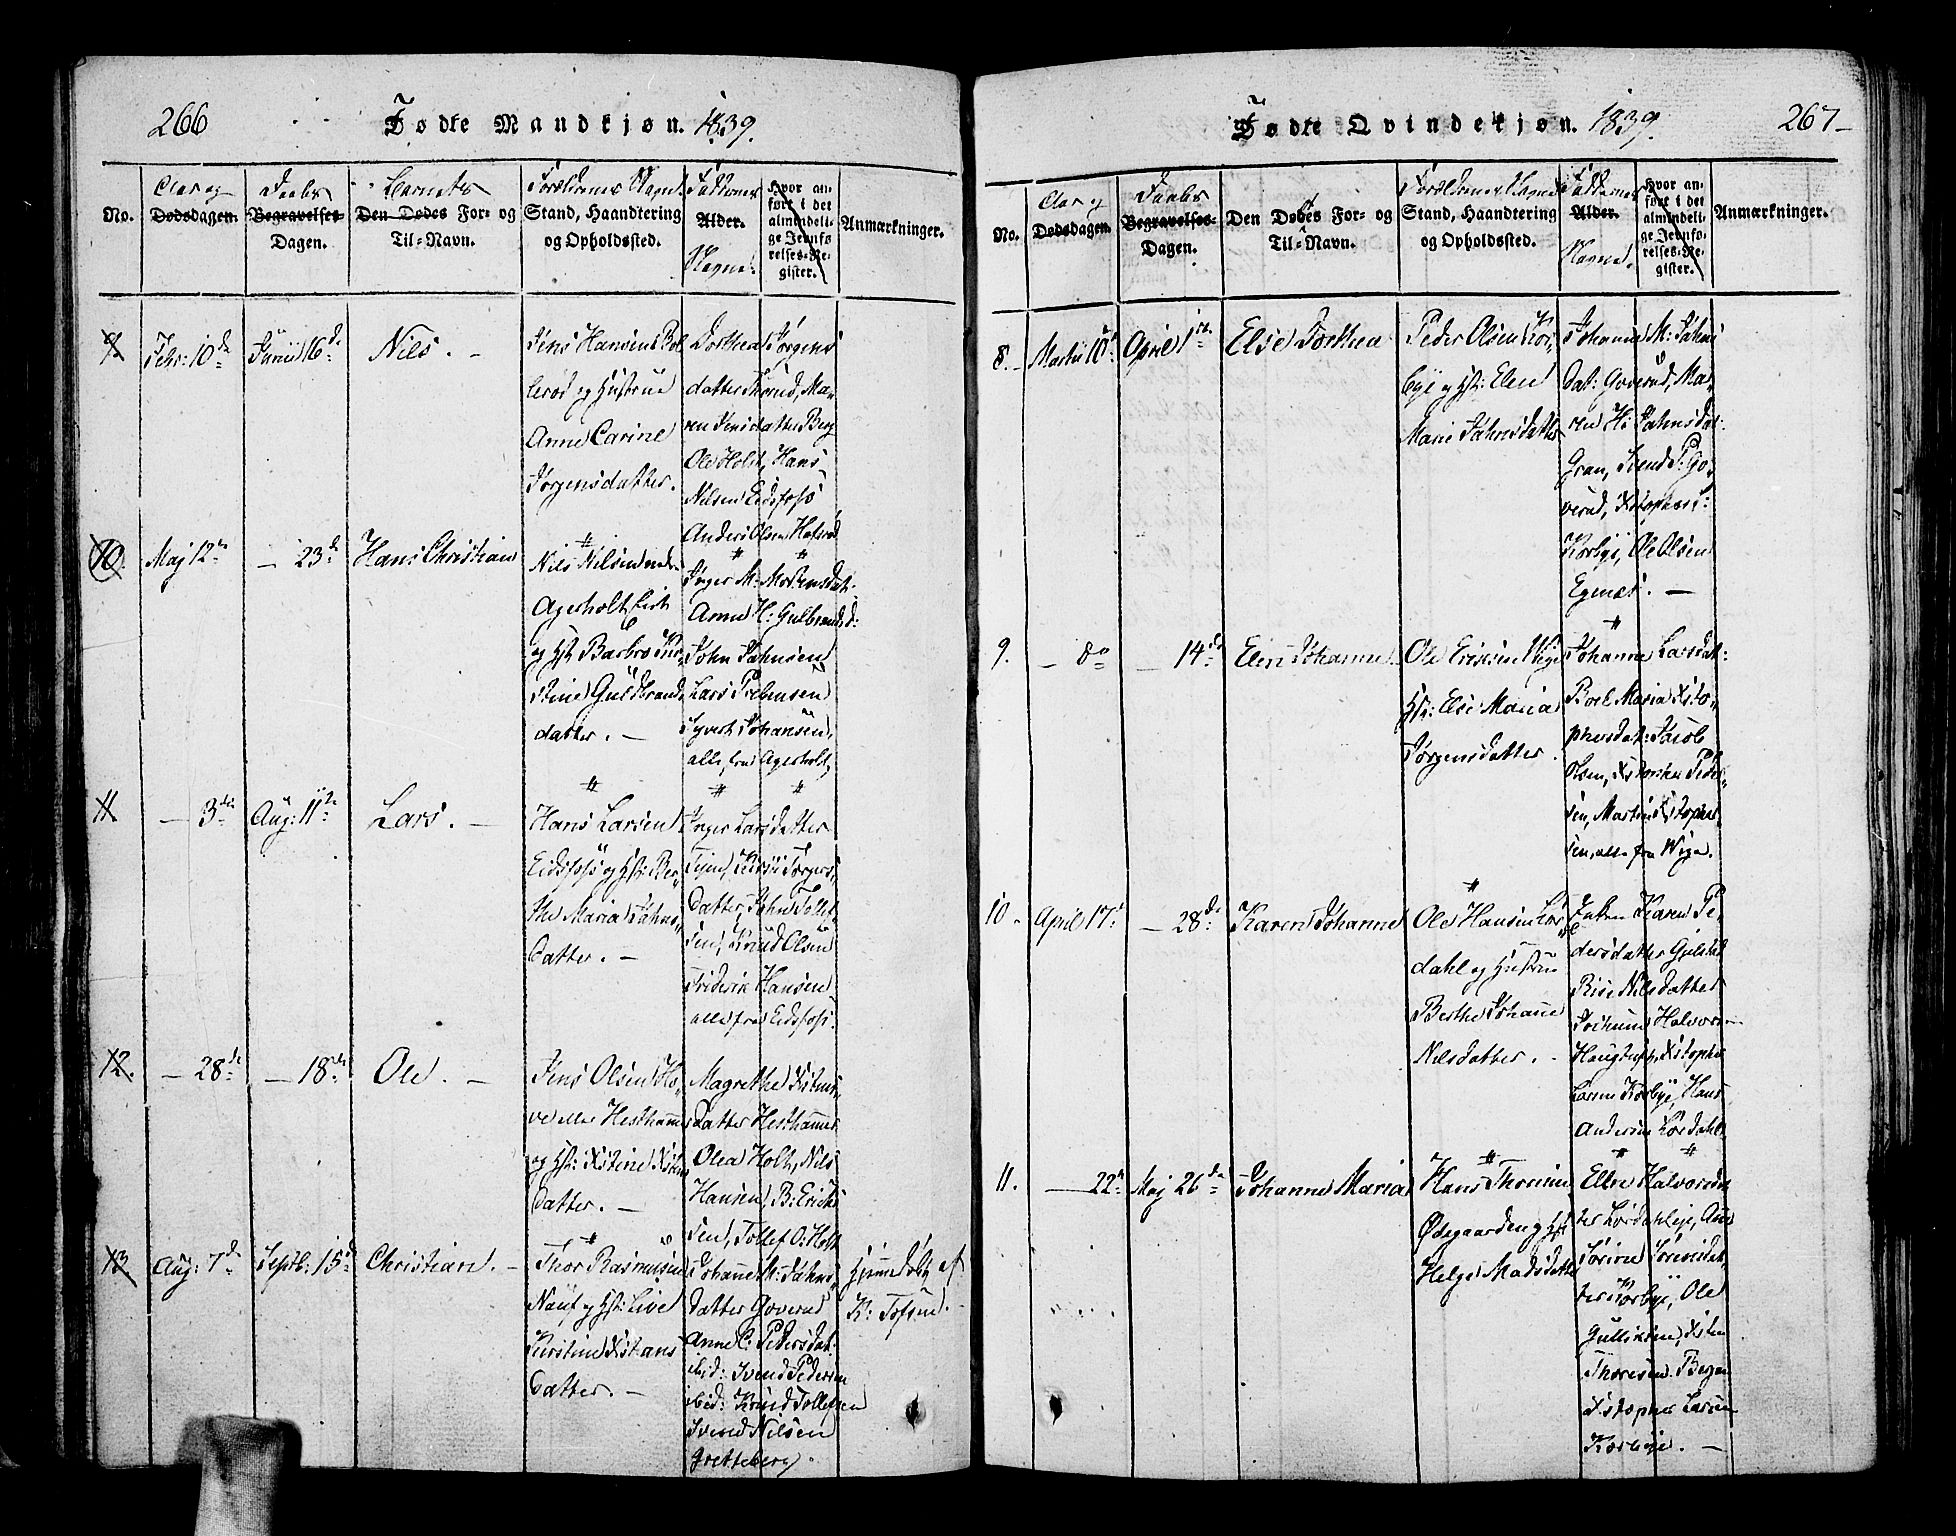 266
Fødte Mandkjøn. 1839.
No.
Aar og
Dødsdagen.
Daabs
Begravelses-
Dagen.
Barnets
Den Dødes For- og
Til-Navn.
Forældrenes Navne
Stand, Haandtering
og Opholdssted.
Faddernes
Alder.
Navne.
Hvor an-
ført i det
almindeli-
ge Jevnfø-
relses-Re-
gister.
Anmærkninger.
9.
Febr: 10de
Junii 16de
Nils. —
Jens Hansen Bol-
lerød og Hustrue
Anne Carine
Jørgensdatter.
Dorthea Jørgens
datter Thorud, Ma-
ren Jensdatter Berg
Ole Holst, Hans
Nilsen Eidsfoss
Anders Olsen Hafsrød
10.
Maj 12te
— 23de
Hans Christian
Nils Nilsen
Agerholt Eiet
og Hst: Barbro Kir-
stine Guldbrands
datter. —
Inger M: Mortensdat:
Anne H: Gulbrandsd:
John Jahnsen
Lars Prebensen
Syvert Johansen,
alle fra Agerholt,
11
— 3die
Aug: 11te
Lars. —
Hans Larsen
Eidsfoss og Hst: Ber-
the Maria Jahns-
datter. —
Inger Larsdatter
datter, Jahn Tollef-
sen, Knud Olsen
Friderik Hansen
alle fra Eidsfoss.
12.
— 28de
— 18de
Ole. —
Jens Olsen Ho-
ve eller Hesthammer
og Hst: Kistine Kisten
datter. —
Magrethe Kistens
datter Hesthammer
Olea Holt, Nils
Hansen, B: Erick-
sen, Tollef O: Holt
13
Aug: 7de
Septb: 15de
Christian. —
Thor Rasmusen
Nauf og Hst: Live
Kirstine Kistans
datter. —
Johanne M: Jahns-
datter Goverud
Anne C: Pedersdat:
ibid: Svend Pedersen
ibid: Knud Tollefsen
Sverud Nilsen
Gretteberg.
Hjemmedøbt af
K: Tofsen. —
267
Fødte Qvindekjøn. 1839.
No.
Aar og
Dødsdagen.
Daabs
Begravelses-
Dagen.
Den Døbes For- og
Til-Navn.
Forældrenes Navne
Stand, Haandtering
og Opholdssted.
Faddernes
Alder.
Navne.
Hvor an-
ført i det
almindeli-
ge Jevnfø-
relses-Re-
gister.
Anmærkninger.
8. —
Martii 10de
April 1ste
Else Dorthea
Peder Olsen Kor-
bye og Hst: Elen
Marie Jahnsdatter
Johanne M: Jahns
dat: Goverud, Ma-
ren H: Jahnsdat:
Gran, Svend P: Go-
verud, Kistopher:
Korbye, Ole Olsen
Egenes. —
9.
— do
— 14de
Elen Johanne
Ole Ericksen Wige
Hst: Else Maria
Jørgensdatter.
Johanne Larsdat:
Boel Maria Kisto-
phersdat: Jacob
Olsen, Kistopher Peder-
sen, Martin Kistopher
sen, alle fra Wige.
10 —
April 17de
— 28de
Karen Johanne
Ole Hansen Lør-
dahl og Hustrue
Berthe Johanne
Nilsdatter. —
Enken Karen Pe-
dersdatter
Rise Nilsdatter
Jochum Halvorsen
Kistopher
Larsen Korbye, Hans
Andersen Lørdahl
11.
— 22de
Maj 26de
Johanne Maria
Hans Thoresen
Ødegaarden og Hst
Helge Madsdatter
Ellen Halvorsdat-
ter Lørdahleje, Anne
Sørine Sørensdat-
ter Korbye, Ole
Gulliksen, Kisten
Thoresen Bergan
Kistopher Larsen
Korbye. —